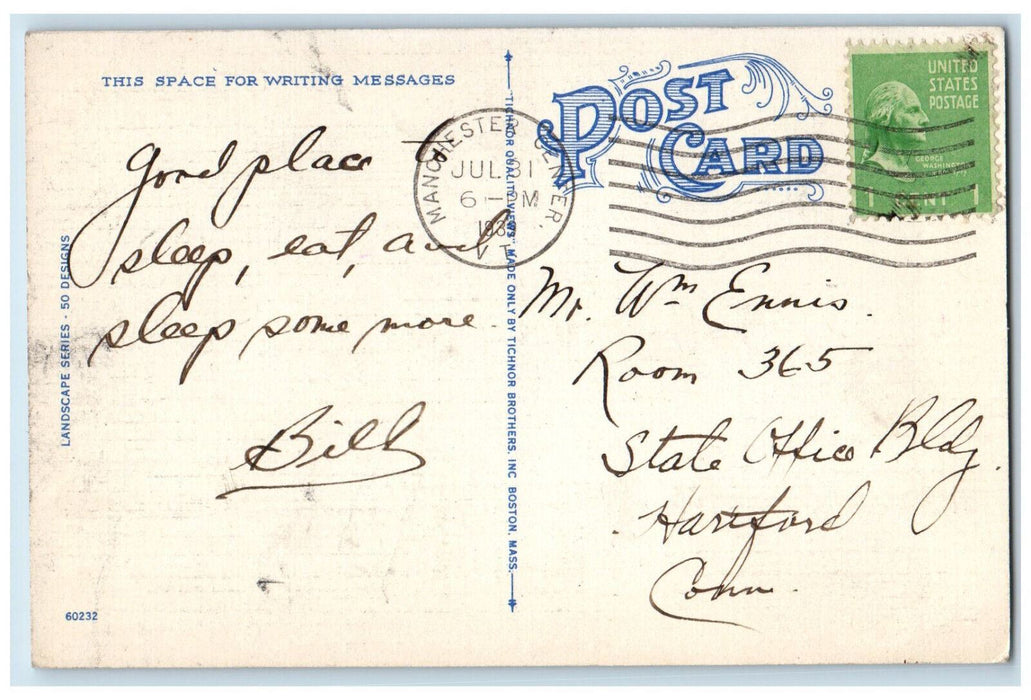 THIS SPACE FOR WRITING MESSAGES
Good place to
sleep, eat, and
sleep some more.
Bill
LANDSCAPE SERIES - 50 DESIGNS
60232
"TICHNOR QUALITY VIEWS" MADE ONLY BY TICHNOR BROTHERS, INC BOSTON, MASS.
POST
CARD
MANCHESTER CENTER
JUL 31
6 - PM
VT.
UNITED
STATES
POSTAGE
GEORGE
WASHINGTON
1 CENT 1
Mr. Wm Ennis.
Room 365
State Office Bldg.
Hartford
Conn.